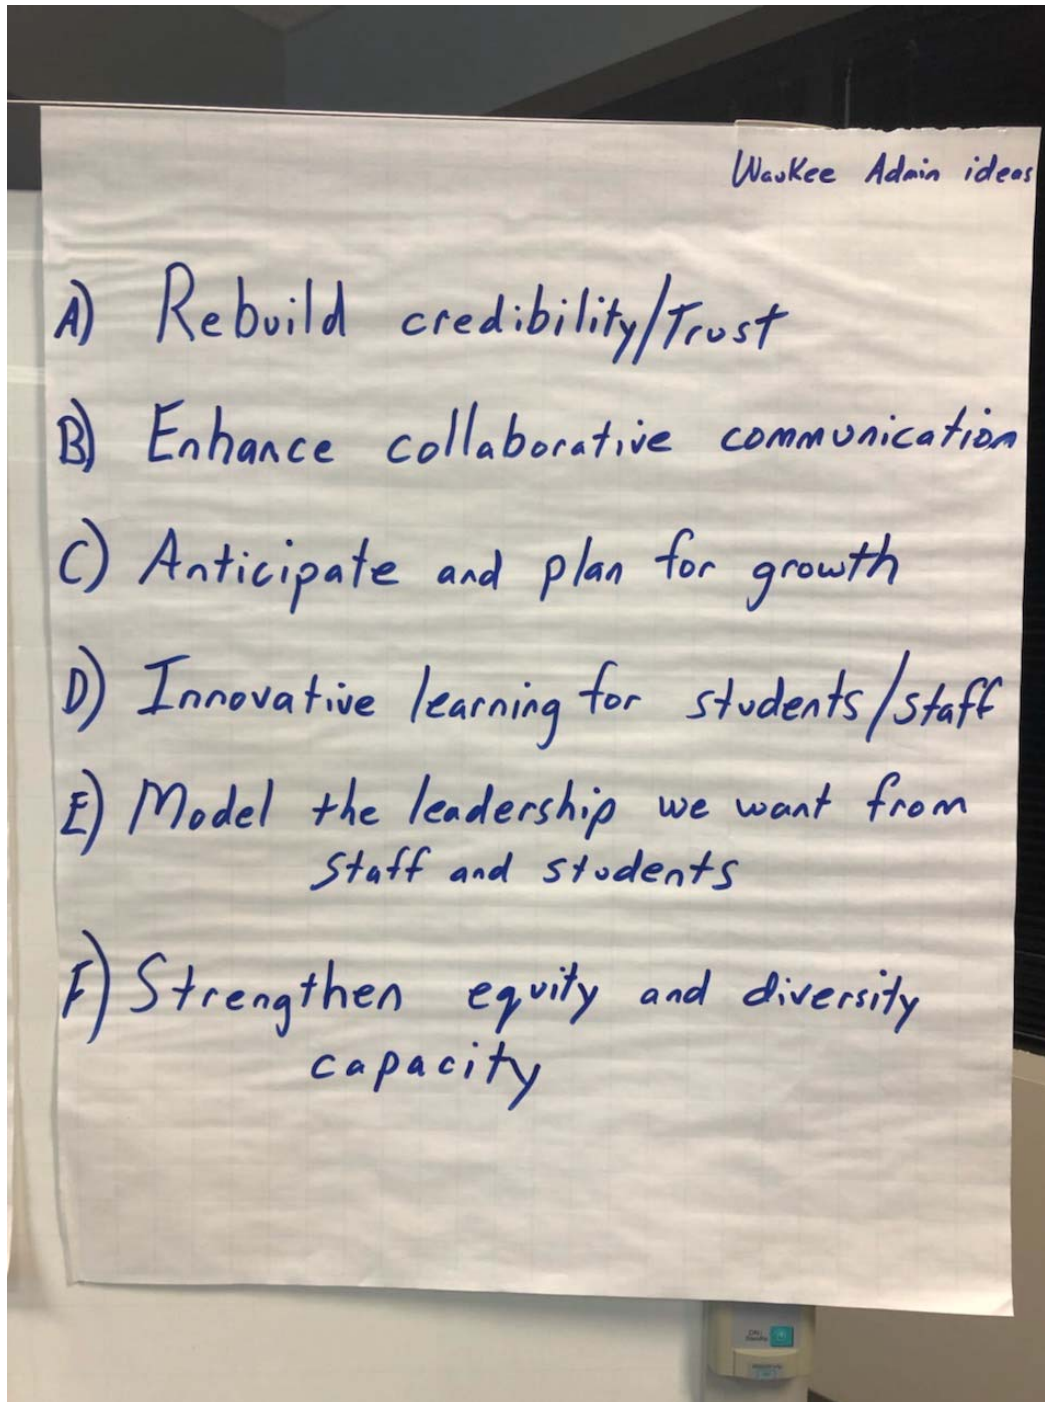 Waukee Admin ideas
A) Rebuild credibility/Trust
B) Enhance collaborative communication
C) Anticipate and plan for growth
D) Innovative learning for students/staff
E) Model the leadership we want from
staff and students
F) Strengthen equity and diversity
capacity